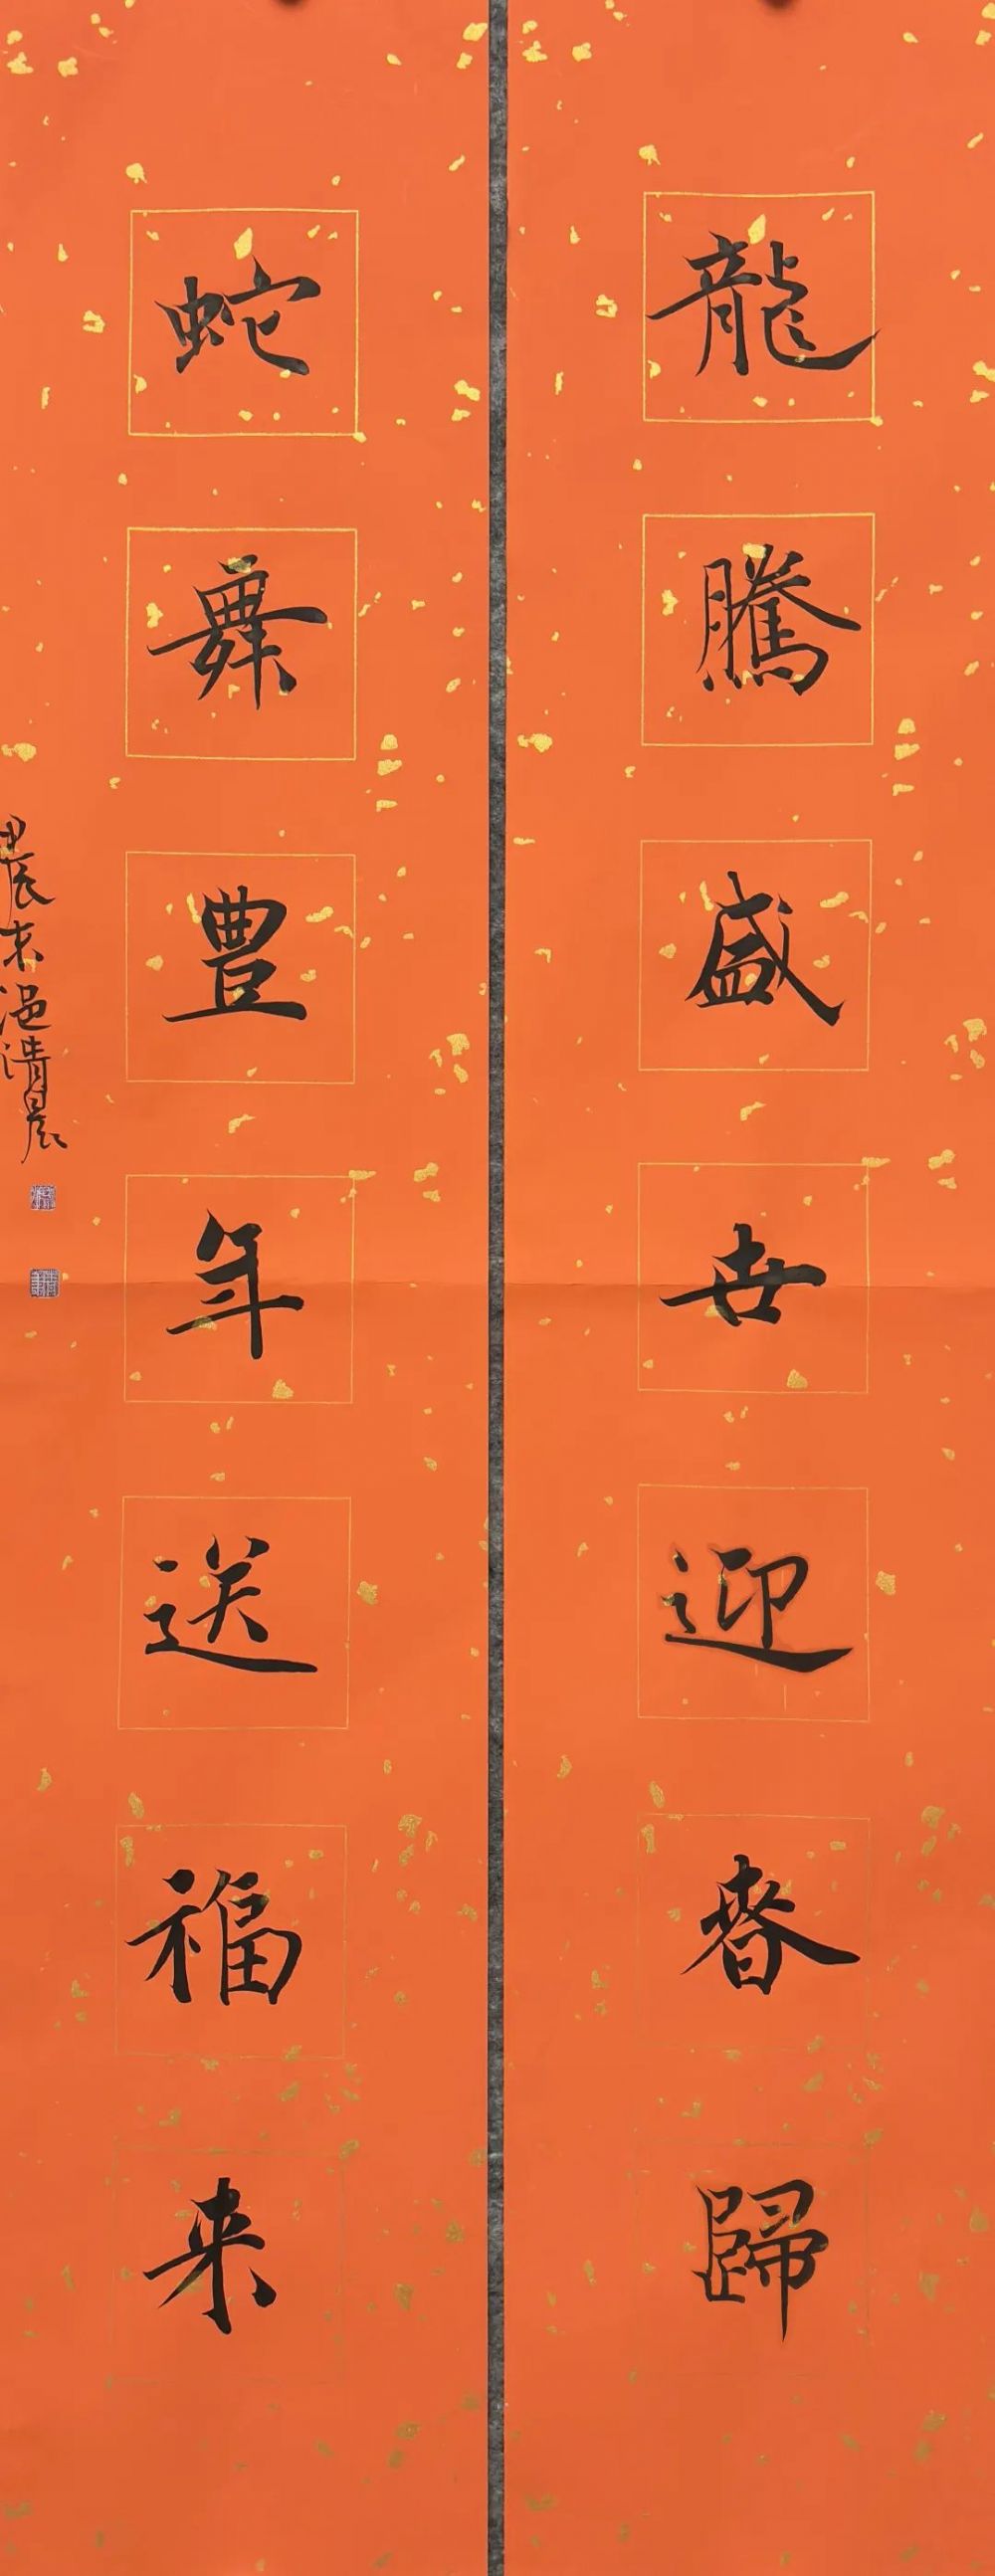 龍騰盛世迎春歸
蛇舞豊年送福来
甲辰末浥清晨